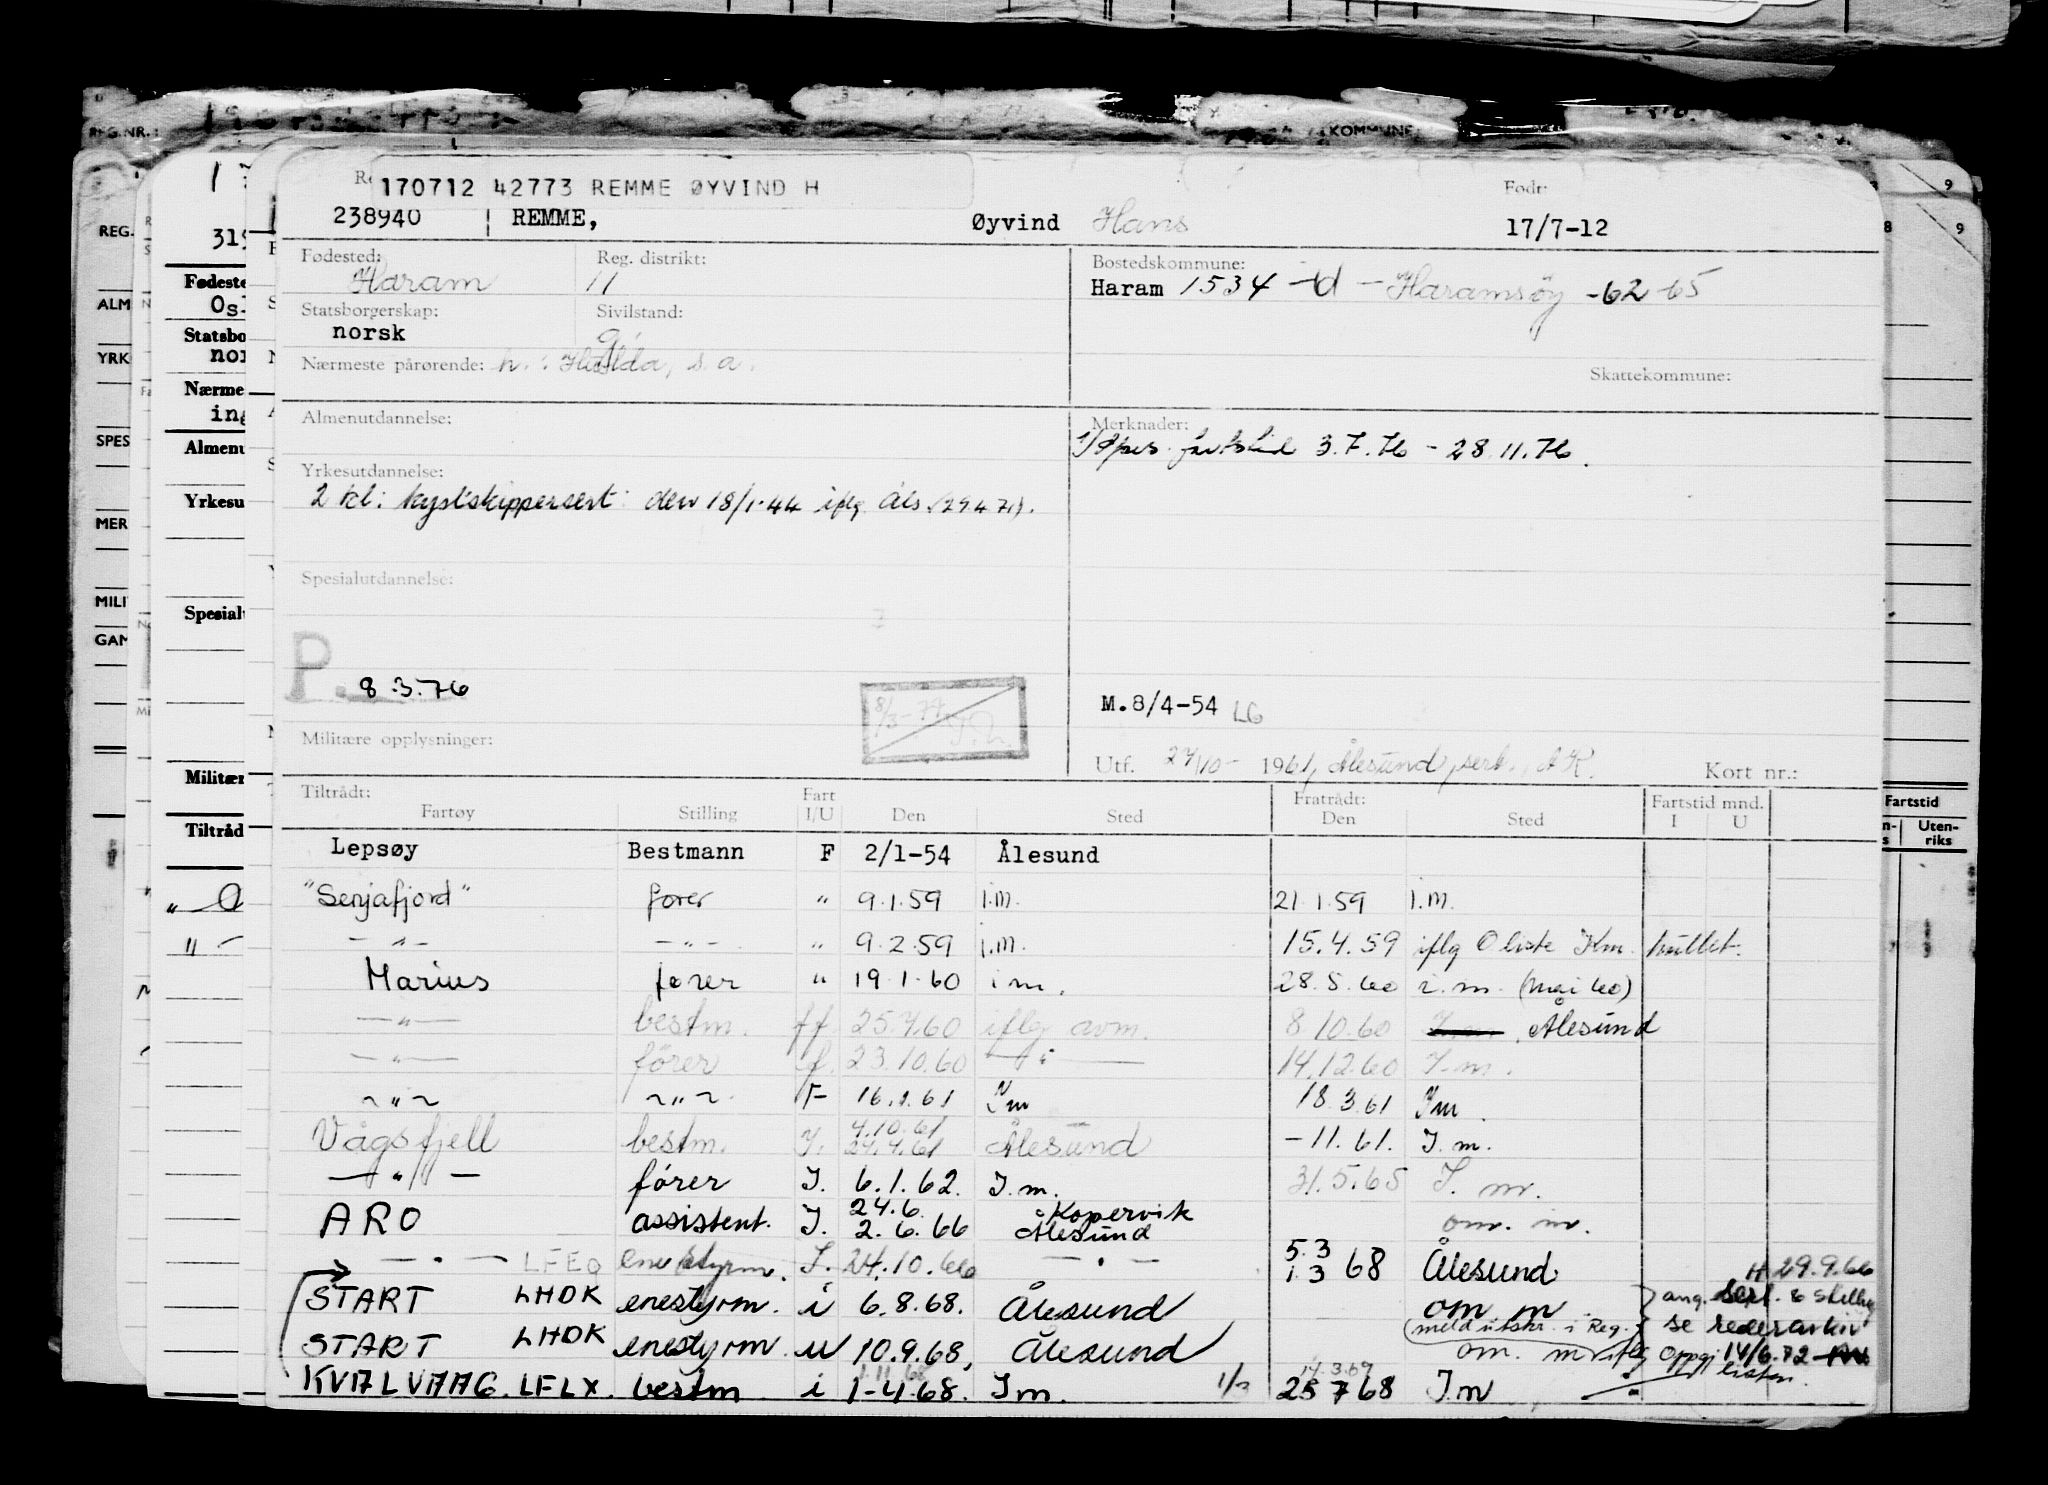 170712 42773 REMME ØYVIND H
238940 REMME, Øyvind Hans
Født:
17/7-12
Fødested: Haram
Reg. distrikt: 11
Bostedskommune:
Haram 1534 - Haramsöy -62 -65
Statsborgerskap: norsk
Sivilstand: g
Nærmeste pårørende: h.: Hilda, s.a.
Skattekommune:
Almenutdannelse:
Merknader:
fartstid 3.7.76 - 28.11.76.
Yrkesutdannelse:
2 kl: kystskippersert: den 18/1-44 iflg. Åls. (29.4.71).
Spesialutdannelse:
P. 8.3.76
8/3-77
M.8/4-54 LG
Militære opplysninger:
Utf. 27/10- 1961, Ålesund, serk., AK.
Kort nr.:
Tiltrådt: Fratrådt: Fartstid mnd.
Fartøy Stilling Fart I/U Den Sted Den Sted I U
Lepsøy Bestmann F 2/1-54 Ålesund
"Senjafjord" fører " 9.1.59 i.m. 21.1.59 i.m.
-"- -"- " 9.2.59 i.m. 15.4.59 iflg O liste Km.
Marius fører " 19.1.60 i m. 28.5.60 i.m. (mai 60)
-"- bestm. ff 25.7.60 iflg avm. 8.10.60 Ålesund
-"- förer f. 23.10.60 -"- 14.12.60 I.m.
~"~ ~"~. F 16.1.61 Im 18.3.61 Im.
Vågsfjell bestm. I. 4.10.61 24.4.61 Ålesund -11.61. I.m.
-"- förer I. 6.1.62. I.m. 31.5.65 I.m.
ARO assistent. I. 24.6. 2.6.66 Kopervik Ålesund om. m.
-"- LFEQ enestyrm. I. 24.10.66 -"- 5.3 1.3 68 Ålesund
29.9.66
START LHDK enestyrm. i 6.8.68. Ålesund om m
ang. & stilling
se rederarkiv
(meld utskr. i Reg.
START LHDK enestyrm. u 10.9.68, Ålesund om. m iflg Oppgj 14/6.72
listen.
KVALVAAG. LFLX. bestm i 1-4.68. I m. 1/2 14.3.69 25 7 68 I.m
KOMMUNE
REG.NR.:
REG.
ALM
YRK
SPES
MER
MILI
GAM
Fødeste
Statsbo
nor
Nærme
ing
Almenu
Yrkesu
Spesial
Militær
Tiltråd
Fartstid
Uten-
riks